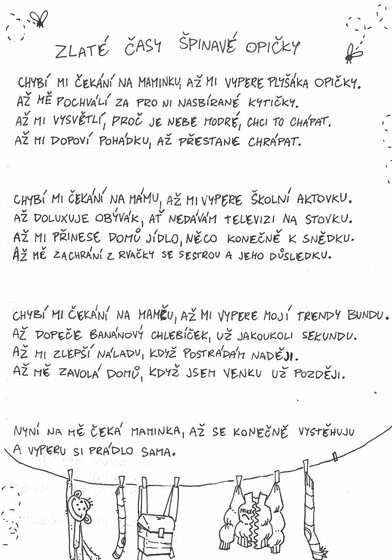 ZLATÉ ČASY ŠPINAVÉ OPIČKY
CHYBÍ MI ČEKÁNÍ NA MAMINKU, AŽ MI VYPERE PLYŠÁKA OPIČKY.
AŽ MĚ POCHVÁLÍ ZA PRO NI NASBÍRANÉ KYTIČKY.
AŽ MI VYSVĚTLÍ, PROČ JE NEBE MODRÉ, CHCI TO CHÁPAT.
AŽ MI DOPOVÍ POHÁDKU, AŽ PŘESTANE CHRÁPAT.
CHYBÍ MI ČEKÁNÍ NA MÁMU, AŽ MI VYPERE ŠKOLNÍ AKTOVKU.
AŽ DOLUXUJE OBÝVÁK, AŤ NEDÁVÁM TELEVIZI NA STOVKU.
AŽ MI PŘINESE DOMŮ JÍDLO, NĚCO KONEČNĚ K SNĚDKU.
AŽ MĚ ZACHRÁNÍ Z RVAČKY SE SESTROU A JEHO DŮSLEDKU.
CHYBÍ MI ČEKÁNÍ NA MAMČU, AŽ MI VYPERE MOJÍ TRENDY BUNDU.
AŽ DOPEČE BANÁNOVÝ CHLEBÍČEK, UŽ JAKOUKOLI SEKUNDU.
AŽ MI ZLEPŠÍ NÁLADU, KDYŽ POSTRÁDÁM NADĚJI.
AŽ MĚ ZAVOLÁ DOMŮ, KDYŽ JSEM VENKU UŽ POZDĚJI.
NYNÍ NA MĚ ČEKÁ MAMINKA, AŽ SE KONEČNĚ VYSTĚHUJU
A VYPERU SI PRÁDLO SAMA.